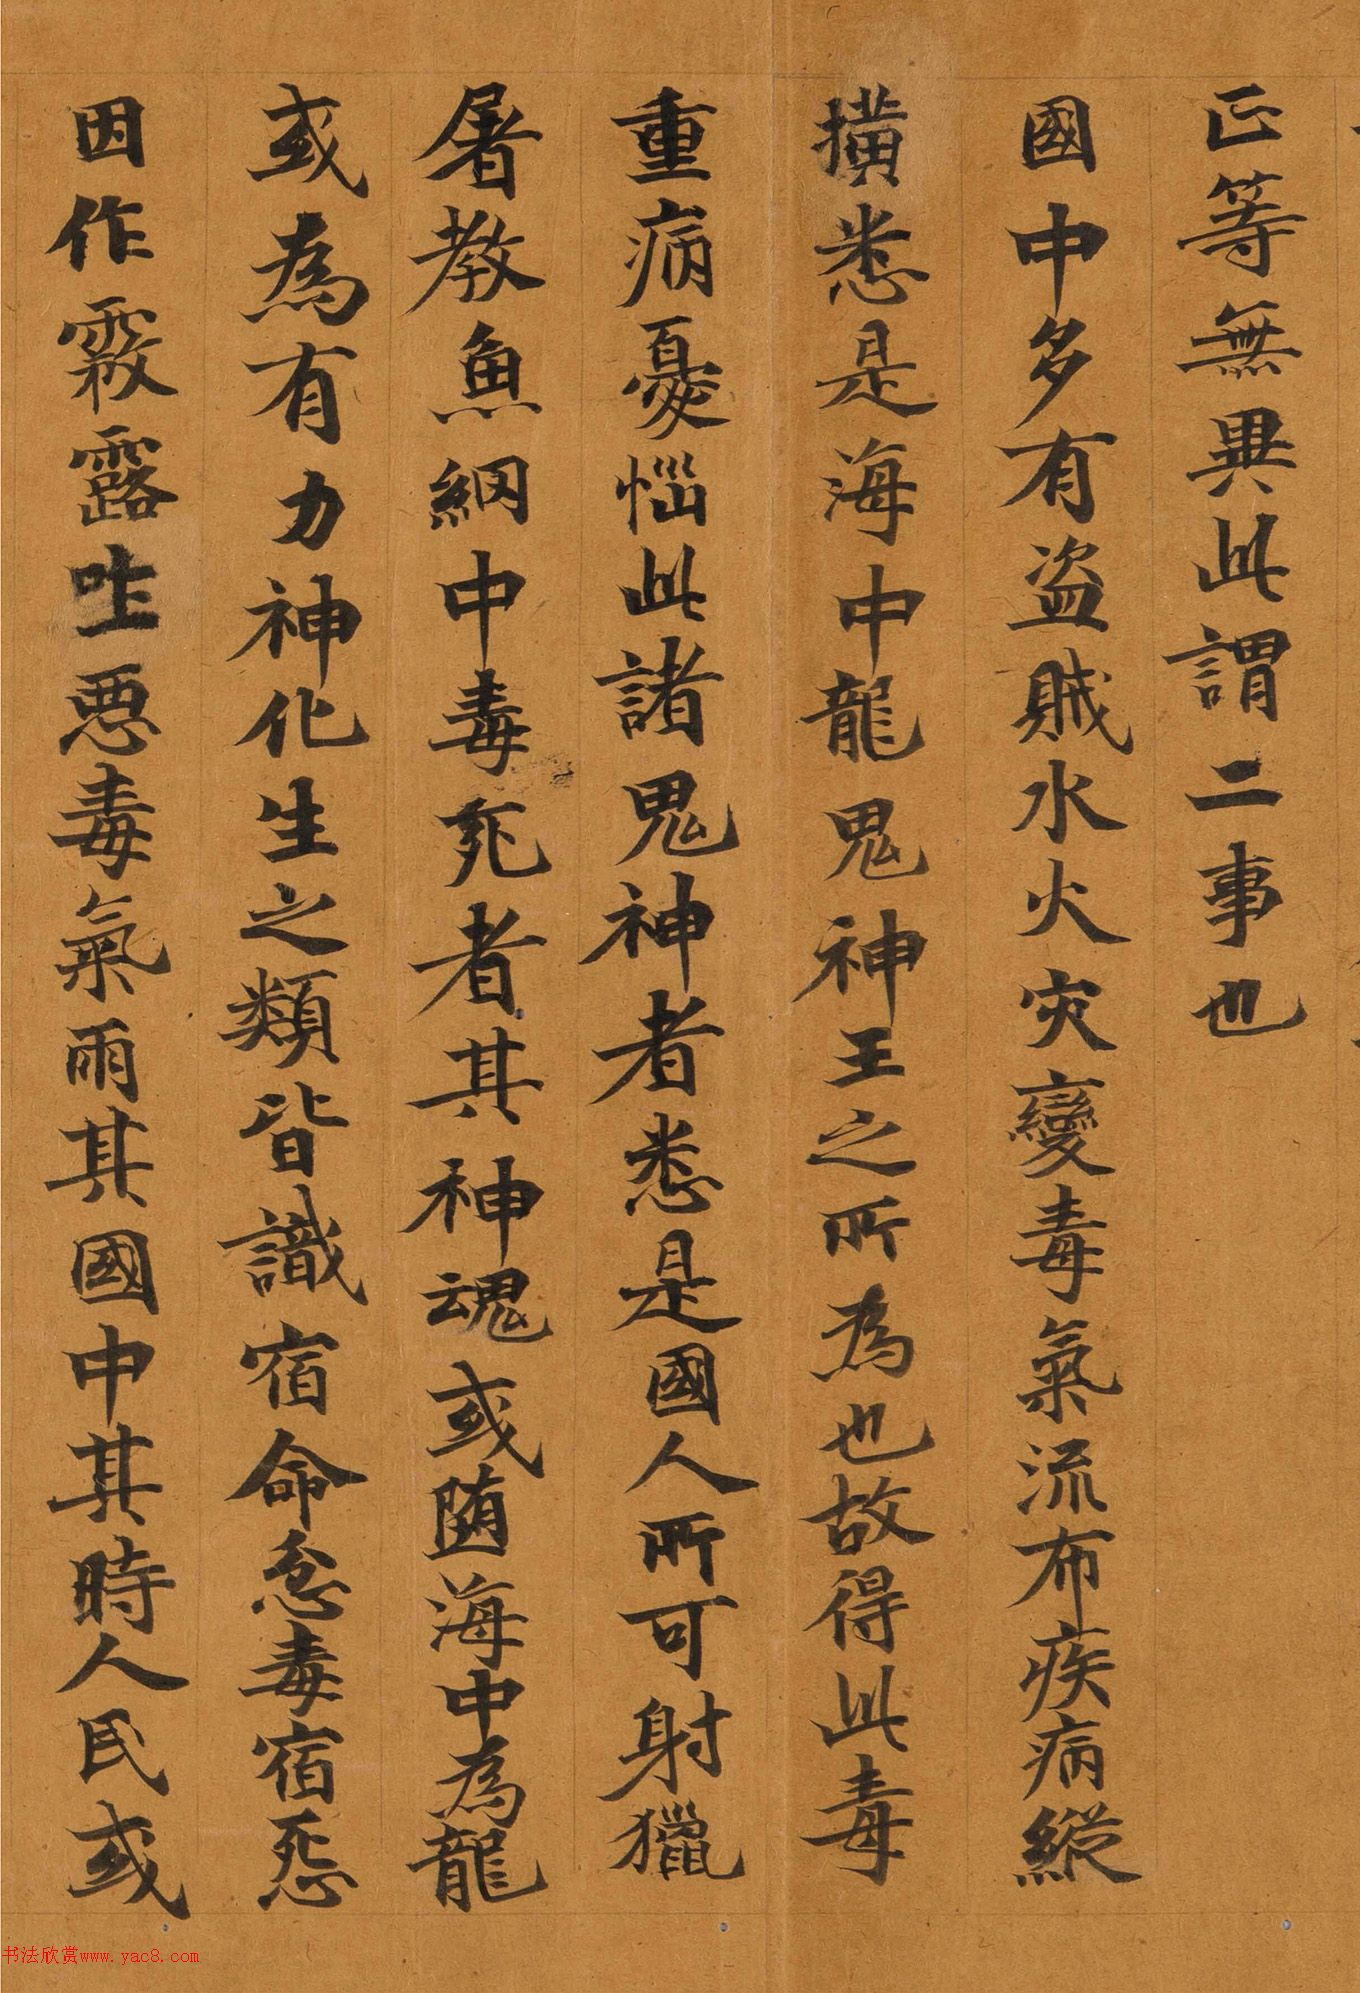 正等無異此謂二事也
國中多有盜賊水火灾變毒氣流布疾病縱
撗悉是海中龍鬼神王之所為也故得此毒
重病憂惱此諸鬼神者悉是國人所可射獵
屠煞魚網中毒死者其神魂或随海中為龍
或為有力神化生之類皆識宿命忿毒宿惡
因作霧露吐惡毒氣雨其國中其時人民或
书法欣赏www.yac8.com